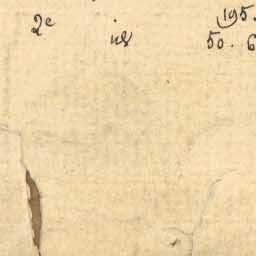 2e id 195.
50. 6